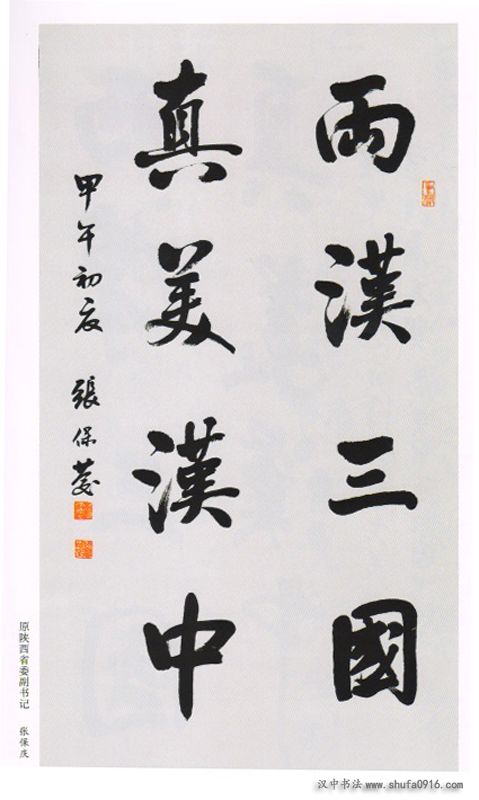 兩漢三國
真美漢中
甲午初夏 張保慶
原陕西省委副书记 张保庆
汉中书法 www.shufa0916.com